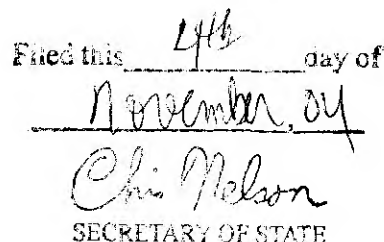 Filed this 4th day of
November, 04
Chris Nelson
SECRETARY OF STATE